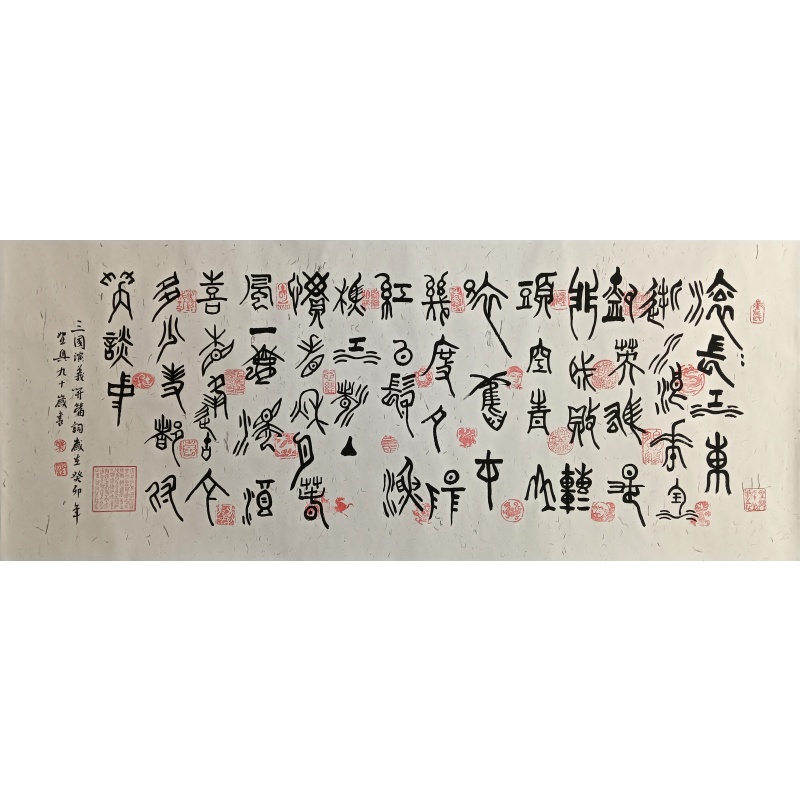 滚滚長江東
逝水浪花淘
盡英雄是
非成敗轉
頭空青山
依舊在
幾度夕陽
紅白髮漁
樵江渚上
慣看秋月春
風一壺濁酒
喜相逢古今
多少事都付
笑談中
三國演義開篇詞歲在癸卯年
九十歲書